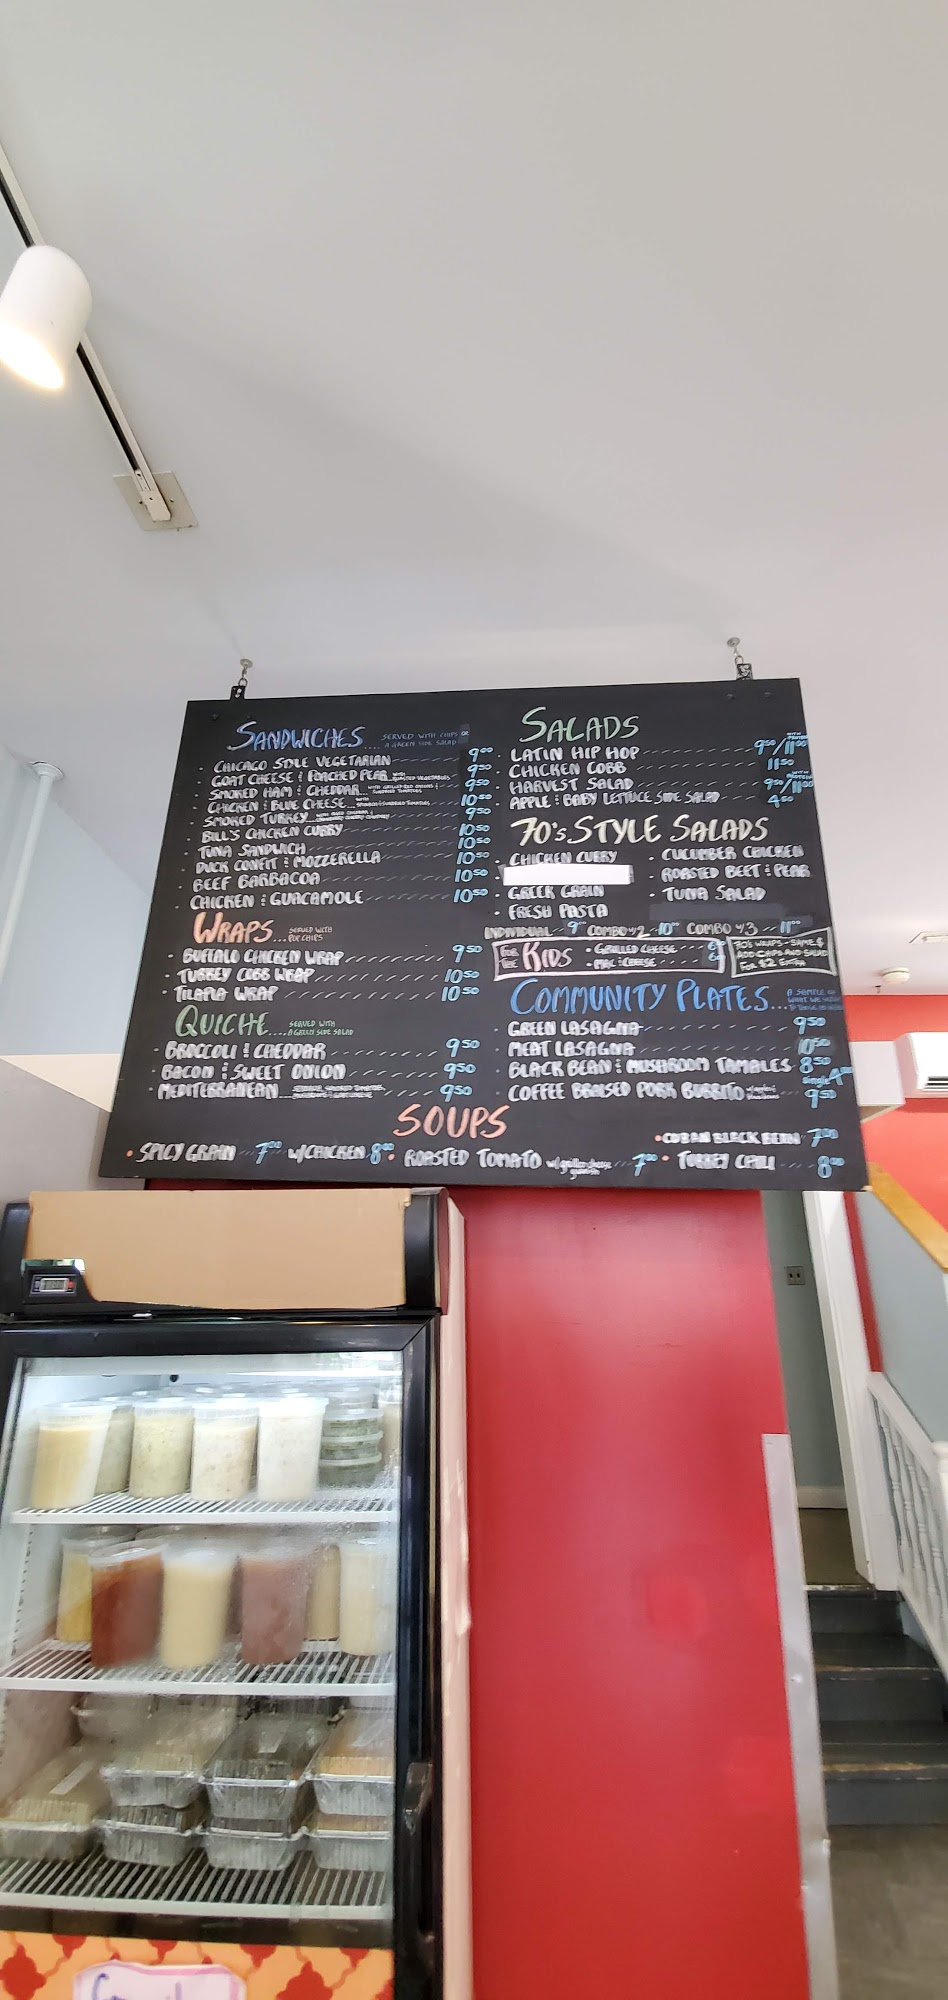 SANDWICHES.... SERVED WITH CHIPS OR
A GREEN SIDE SALAD
CHICAGO STYLE VEGETARIAN 9⁰⁰
GOAT CHEESE & POACHED PEAR WITH ROASTED VEGETABLES 9⁵⁰
SMOKED HAM & CHEDDAR... WITH GRILLED RED ONIONS & SUNDRIED TOMATOES 9⁵⁰
CHICKEN & BLUE CHEESE... WITH SPINACH & SUNDRIED TOMATOES 10⁵⁰
SMOKED TURKEY 9⁵⁰
BILL'S CHICKEN CURRY 10⁵⁰
TUNA SANDWICH 10⁵⁰
DUCK CONFIT & MOZZERELLA 10⁵⁰
BEEF BARBACOA 10⁵⁰
CHICKEN & GUACAMOLE 10⁵⁰
WRAPS... SERVED WITH
POP CHIPS
BUFFALO CHICKEN WRAP 9⁵⁰
TURKEY COBB WRAP 10⁵⁰
TILAPIA WRAP 10⁵⁰
QUICHE... SERVED WITH
A GREEN SIDE SALAD
BROCCOLI & CHEDDAR 9⁵⁰
BACON & SWEET ONION 9⁵⁰
MEDITERRANEAN 9⁵⁰
SALADS
LATIN HIP HOP 9⁵⁰/11⁰⁰ WITH PROTEIN
CHICKEN COBB 11⁵⁰
HARVEST SALAD 9⁵⁰/11⁰⁰ WITH PROTEIN
APPLE & BABY LETTUCE SIDE SALAD 4⁵⁰
70's STYLE SALADS
CHICKEN CURRY
GREEK GRAIN
FRESH PASTA
CUCUMBER CHICKEN
ROASTED BEET & PEAR
TUNA SALAD
INDIVIDUAL 9⁰⁰ COMBO w/2 10⁰⁰ COMBO w/3 11⁰⁰
KIDS
GRILLED CHEESE
MAC & CHEESE
70's WRAPS - SAME $
ADD CHIPS AND SALAD
FOR $2 EXTRA
COMMUNITY PLATES... A SAMPLE OF
WHAT WE SERVE
GREEN LASAGNA 9⁵⁰
MEAT LASAGNA 10⁵⁰
BLACK BEAN & MUSHROOM TAMALES 8⁵⁰
single 4⁰⁰
COFFEE BRAISED PORK BURRITO 9⁵⁰
SOUPS
CUBAN BLACK BEAN 7⁵⁰
SPICY GRAIN 7⁰⁰ W/CHICKEN 8⁰⁰
ROASTED TOMATO w/ grilled cheese 7⁰⁰
TURKEY CHILI 8⁰⁰